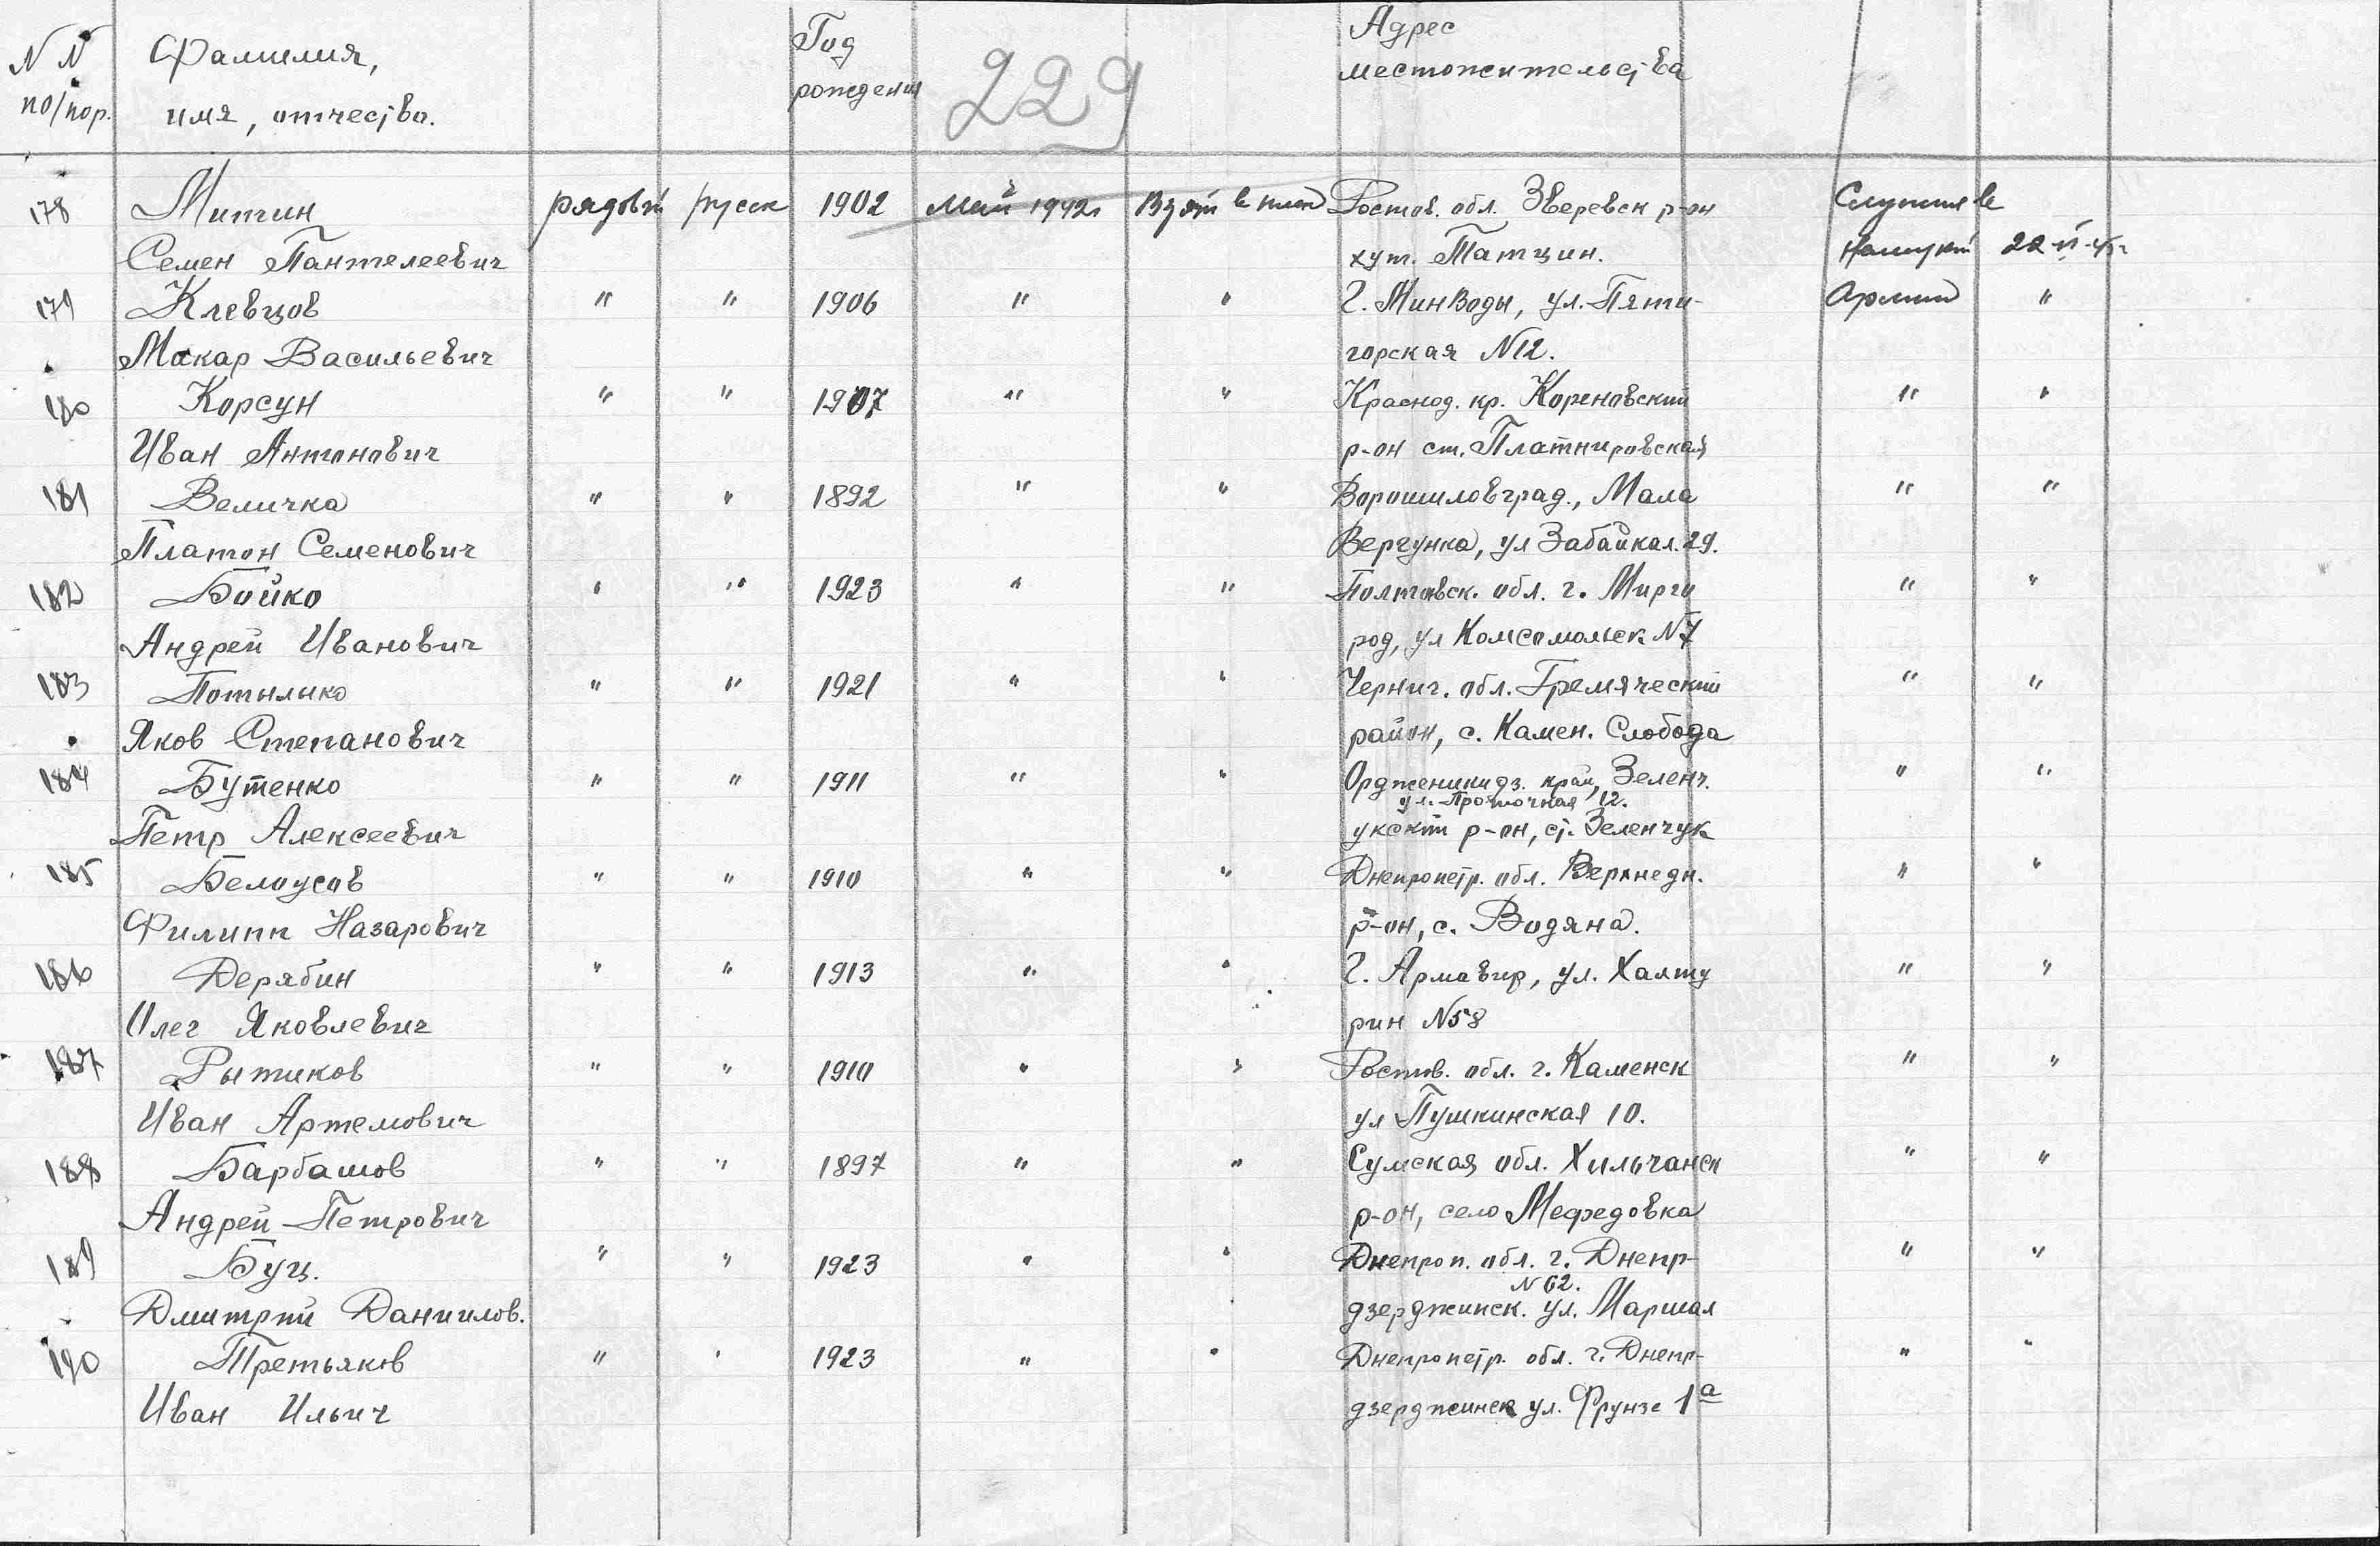 N N по/пор.
Фамилия, имя, отчество.
Год рождения
229
Адрес местожительства
178 Митин рядовой русск 1902 май 1942г Взят в плен Ростов. обл. Зверевск р-он Служил в
Семен Пантелеевич хут. Татцин. Немецкой
179 Клевцов " " 1906 " " Г. МинВоды, ул. Пяти- Армии "
Макар Васильевич горская N12.
180 Корсун " " 1907 " " Краснод. кр. Кореновский " "
Иван Антонович р-он ст. Платнировская
181 Величка " " 1892 " " Ворошиловград., Мала " "
Платон Семенович Вергунка, ул Забайкал. 29.
182 Бойко " " 1923 " " Полтавск. обл. г. Мирго " "
Андрей Иванович род, ул Комсомольск N7
183 Потылико " " 1921 " " Черниг. обл. Гремяческий " "
Яков Степанович район, с. Камен. Слобода
184 Бутенко " " 1911 " " Орджоникидз. край, Зеленч. " "
ул. Проточная 12.
Петр Алексеевич укский р-он, ст. Зеленчук
185 Белоусов " " 1910 " " Днепропетр. обл. Верхнедн. " "
Филипп Назарович р-он, с. Водяна.
186 Дерябин " " 1913 " " Г. Армавир, ул. Халту " "
Олег Яковлевич рин N58
187 Рытиков " " 1910 " " Ростов. обл. г. Каменск " "
Иван Артемович ул Пушкинская 10.
188 Барбашов " " 1897 " " Сумская обл. Хильчанск " "
Андрей Петрович р-он, село Мефедовка
189 Буц. " " 1923 " " Днепроп. обл. г. Днепр- " "
N 62.
Дмитрий Даниилов. дзержинск. ул. Маршал
190 Третьяков " " 1923 " " Днепропетр. обл. г. Днепр- " "
Иван Ильич дзерджинск ул. Фрунзе 1а